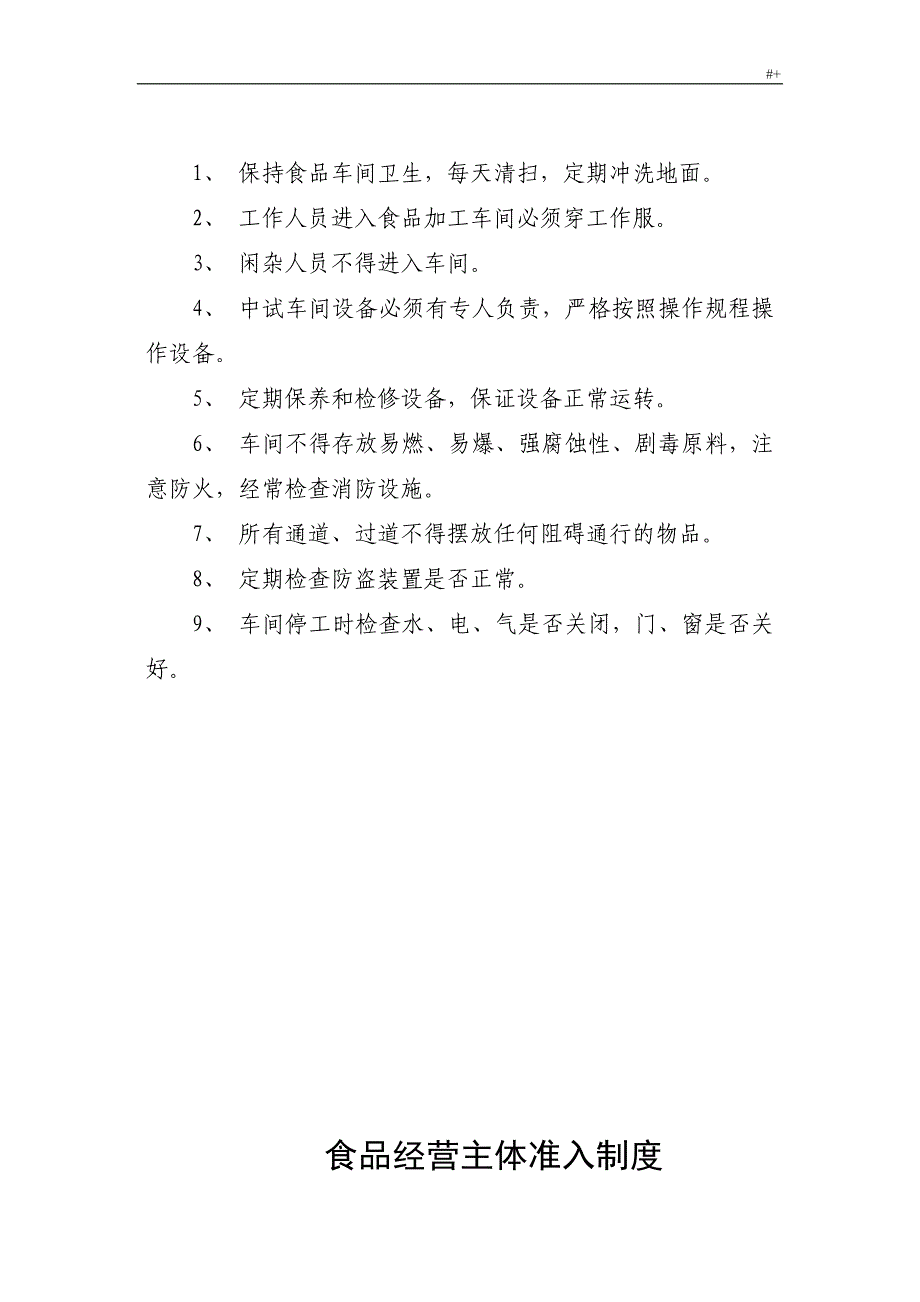 #+
1、 保持食品车间卫生，每天清扫，定期冲洗地面。
2、 工作人员进入食品加工车间必须穿工作服。
3、 闲杂人员不得进入车间。
4、 中试车间设备必须有专人负责，严格按照操作规程操
作设备。
5、 定期保养和检修设备，保证设备正常运转。
6、 车间不得存放易燃、易爆、强腐蚀性、剧毒原料，注
意防火，经常检查消防设施。
7、 所有通道、过道不得摆放任何阻碍通行的物品。
8、 定期检查防盗装置是否正常。
9、 车间停工时检查水、电、气是否关闭，门、窗是否关
好。
食品经营主体准入制度